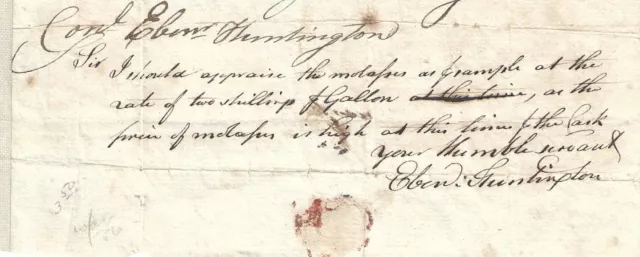 Conl. Ebenr. Huntington
Sir I should appraise the molasses as ⅌ sample at the
rate of two shillings ⅌ Gallon at this time, as the
price of molasses is high at this time & the Cask
your Humble servant
Ebenr. Huntington
3 50